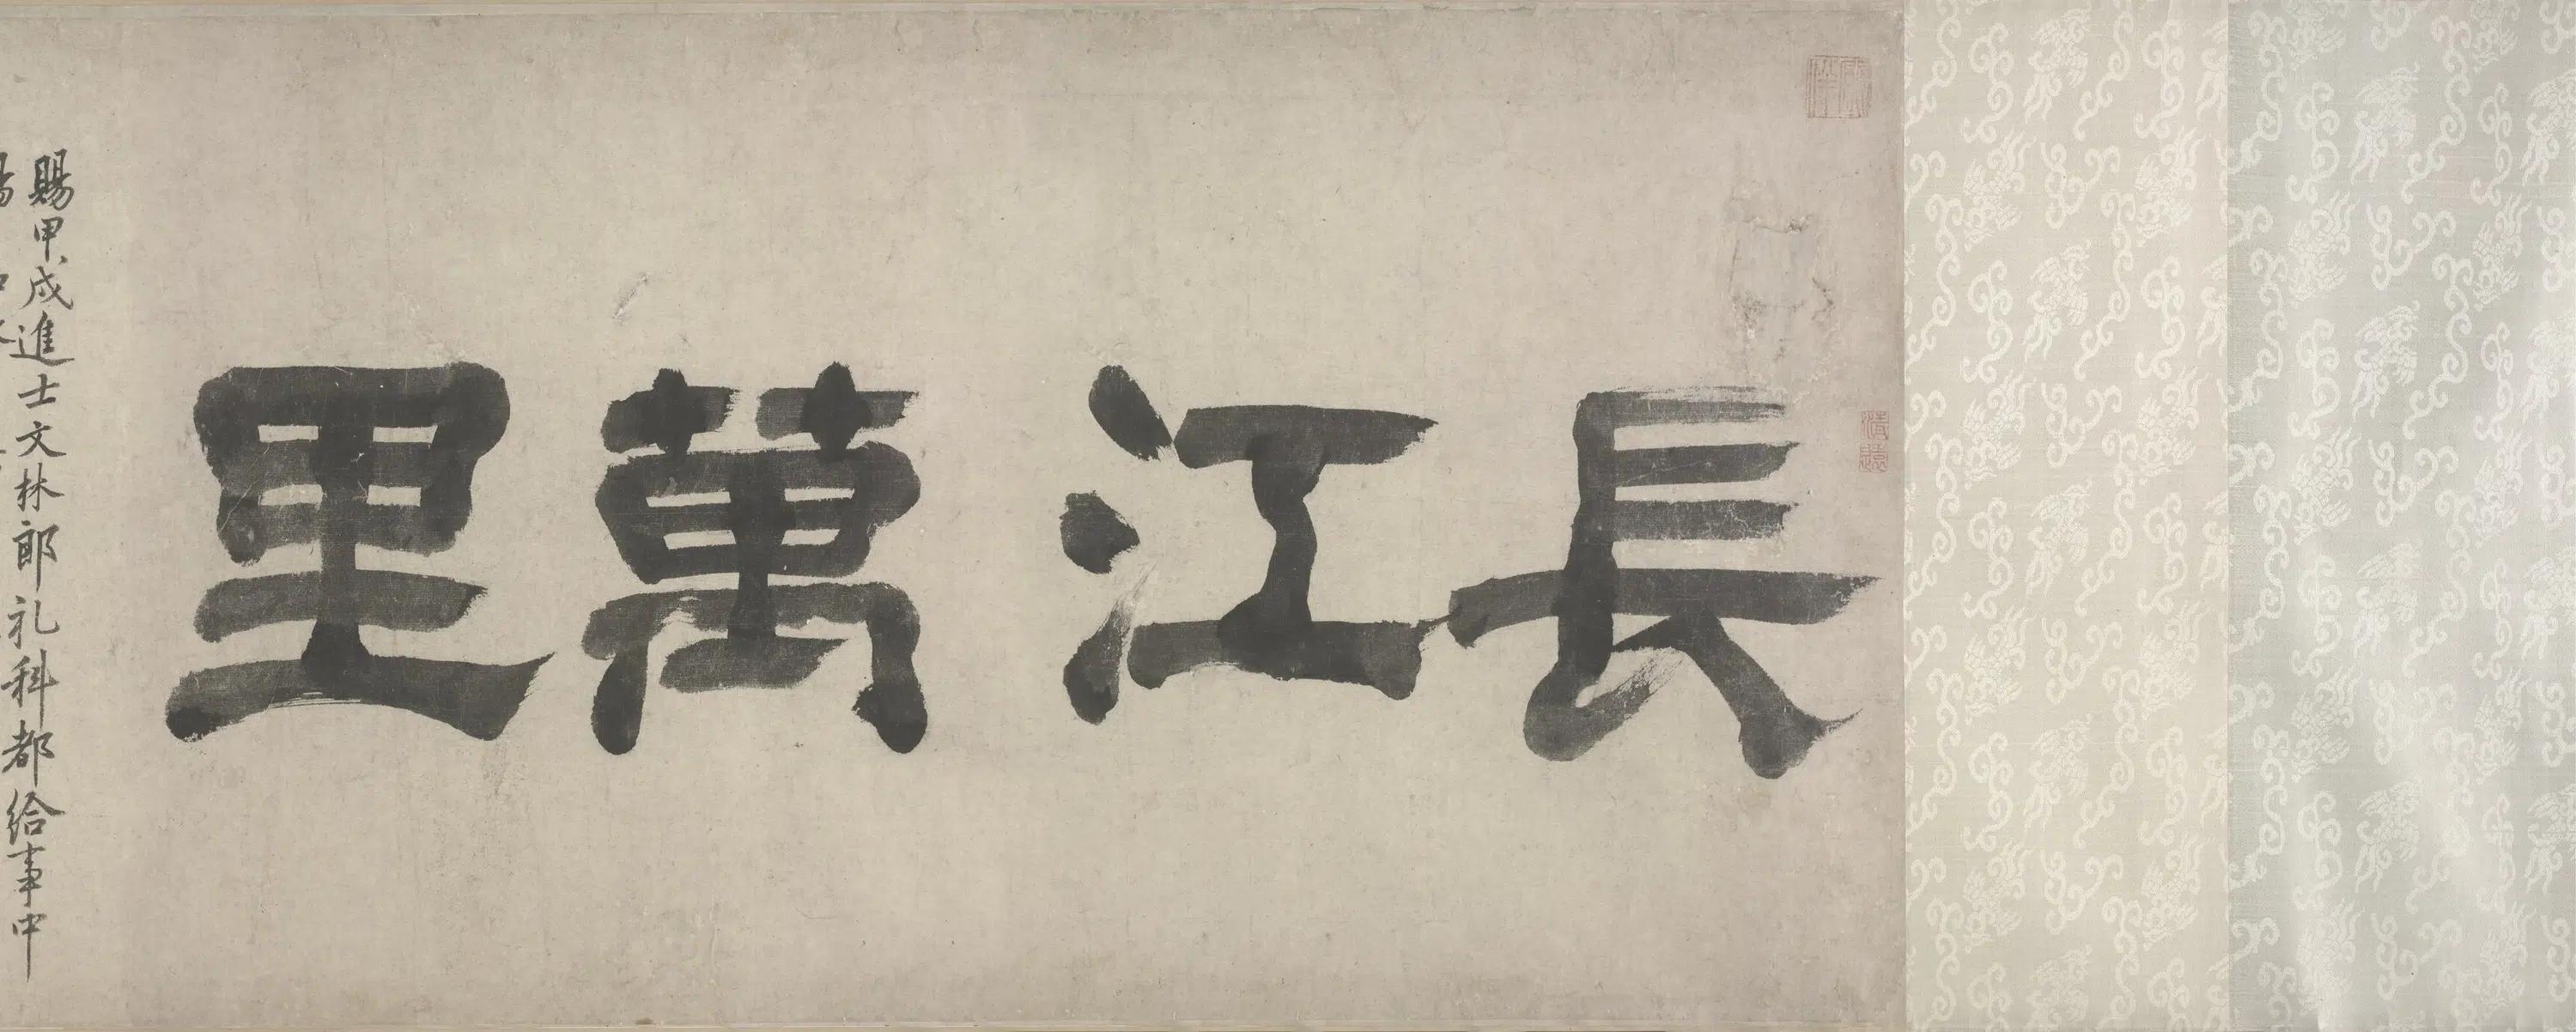 長江萬里
賜甲戌進士文林郎礼科都給事中